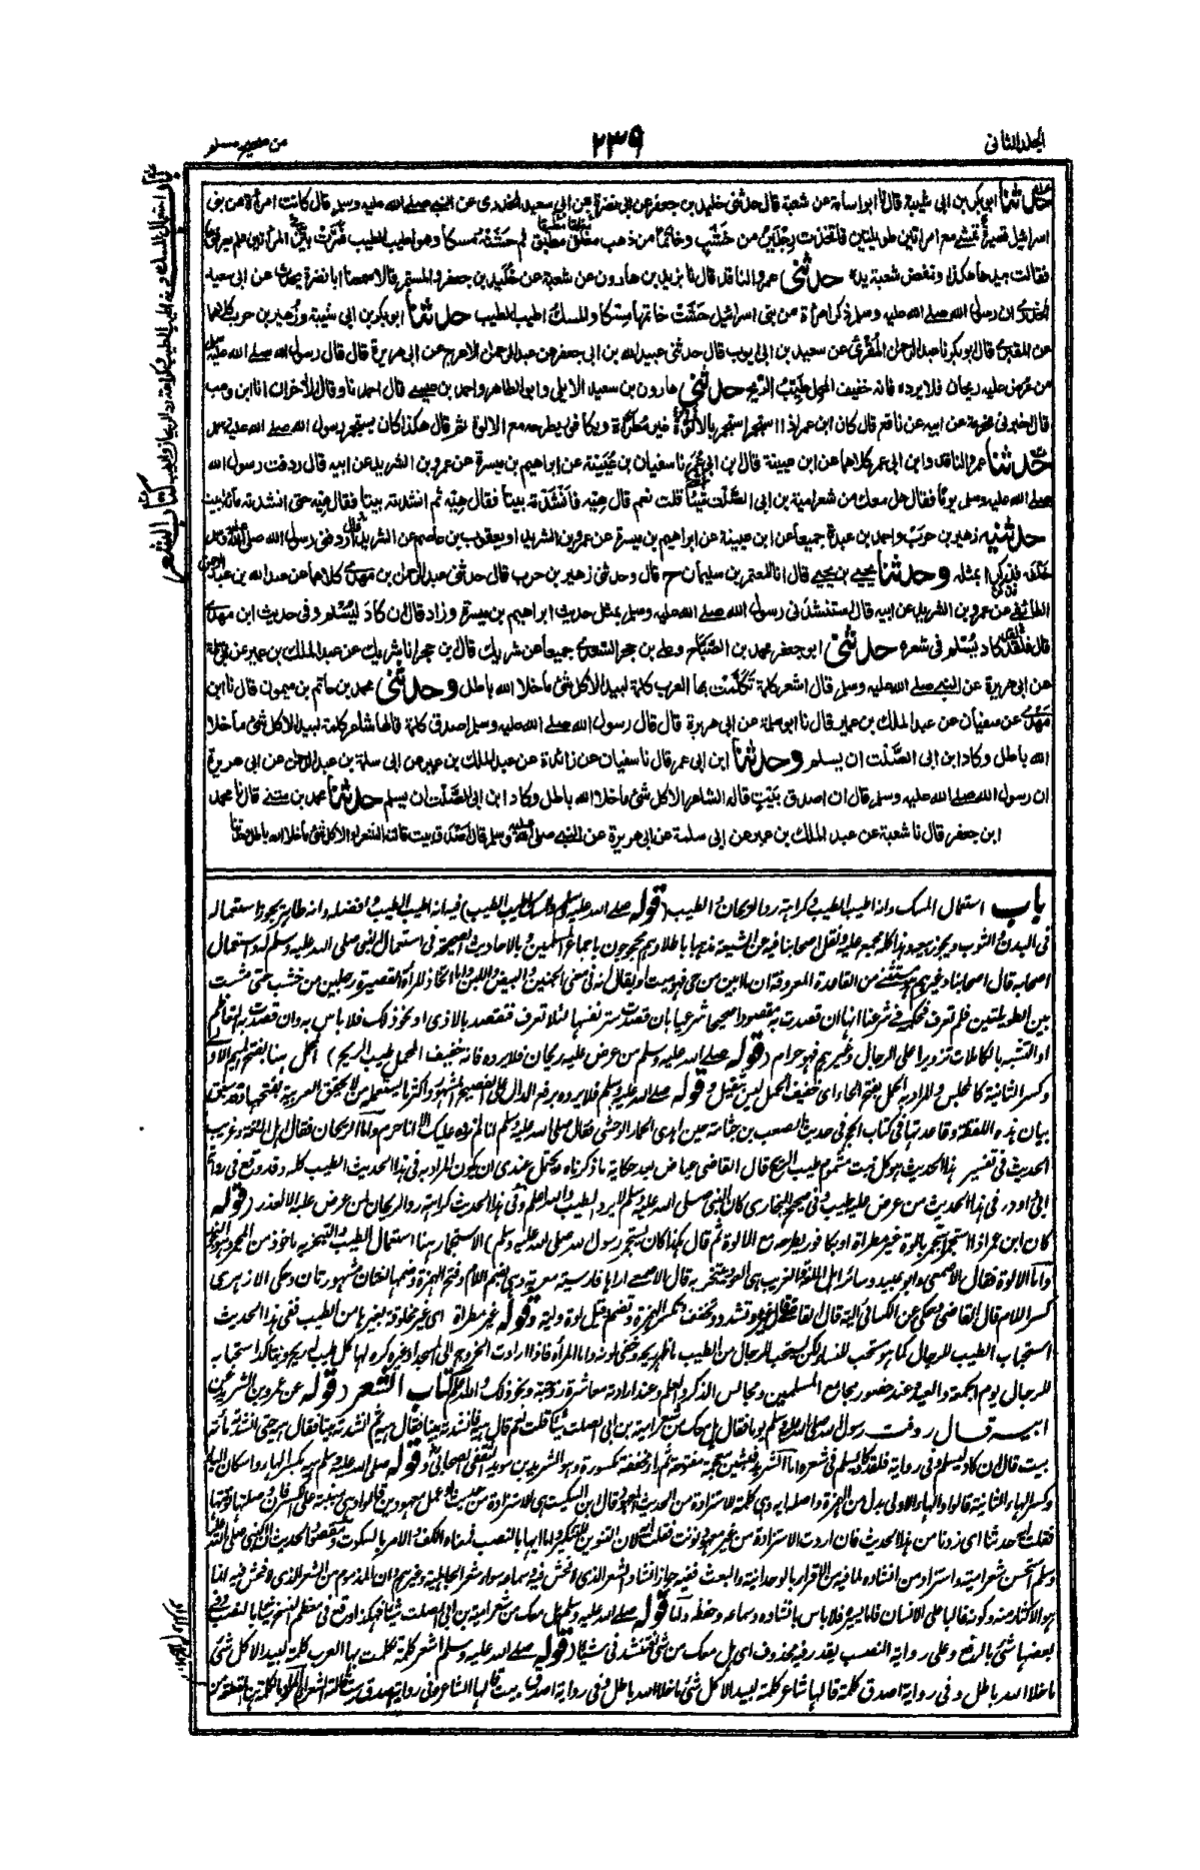 الجلد الثانی
٢٣٩
من صحيح مسلم
حدثنا ابو بكر بن ابى شيبة قال نا ابو اسامة عن شعبة قال حدثنى خليد بن جعفر عن ابى نضرة عن ابى سعيد الخدرى عن النبى صلے الله عليه وسلم قال كانت امرأة من بنى
اسرائيل قصيرة تمشے مع امرأتين طويلتين فاتخذت رجلين من خشب وخاتما من ذهب مغلق مطبق ثم حشته مسكا وهو اطيب الطيب فمرت بين المرأتين فلم يعرفوها
فقالت بيدها هكذا ونفض شعبة يده حدثنى عمرو الناقد قال نا يزيد بن هارون عن شعبة عن خليد بن جعفر والمستمر قالا سمعنا ابا نضرة يحدث عن ابى سعيد
الخدرى ان رسول الله صلے الله عليه وسلم ذكر امرأة من بنى اسرائيل حشت خاتمها مسكا والمسك اطيب الطيب حدثنا ابو بكر بن ابى شيبة وزهير بن حرب كلاهما
عن المقبرى قال ابو بكر نا عبد الرحمن المقرئ عن سعيد بن ابى ايوب قال حدثنى عبيد الله بن ابى جعفر عن عبد الرحمن الاعرج عن ابى هريرة قال قال رسول الله صلے الله عليه
من عرض عليه ريحان فلا يرده فانه خفيف المحمل طيب الريح حدثنى هارون بن سعيد الايلى وابو الطاهر واحمد بن عيسے قال احمد نا وقال الآخران انا ابن وهب
قال اخبرنى مخرمة عن ابيه عن نافع قال كان ابن عمر اذا استجمر استجمر بالالوة غير مطراة وبكافور يطرحه مع الالوة ثم قال هكذا كان يستجمر رسول الله صلے الله عليه وسلم
حدثنا عمرو الناقد وابن ابى عمر كلاهما عن ابن عيينة قال ابن ابى عمر نا سفيان بن عيينة عن ابراهيم بن ميسرة عن عمرو بن الشريد عن ابيه قال ردفت رسول الله
صلے الله عليه وسلم يوما فقال هل معك من شعر امية بن ابى الصلت شيئا قلت نعم قال هيه فانشدته بيتا فقال هيه ثم انشدته بيتا فقال هيه حتى انشدته مائة بيت
حدثنيه زهير بن حرب واحمد بن عبدة جميعا عن ابن عيينة عن ابراهيم بن ميسرة عن عمرو بن الشريد او يعقوب بن عاصم عن الشريد قال اردفنى رسول الله صلى الله عليه وسلم
خلفه فذكر بمثله وحدثنا يحيے بن يحيے قال انا المعتمر بن سليمان ح قال وحدثنى زهير بن حرب قال حدثنى عبد الرحمن بن مهدى كلاهما عن عبد الله بن عبد الرحمن
الطائفى عن عمرو بن الشريد عن ابيه قال استنشدنى رسول الله صلے الله عليه وسلم بمثل حديث ابراهيم بن ميسرة وزاد قال ان كاد ليسلم وفى حديث ابن مهدى
قال فلقد كاد يسلم فى شعره حدثنى ابو جعفر محمد بن الصباح وعلى بن حجر السعدى جميعا عن شريك قال ابن حجر انا شريك عن عبد الملك بن عمير عن ابى سلمة
عن ابى هريرة عن النبى صلے الله عليه وسلم قال اشعر كلمة تكلمت بها العرب كلمة لبيد الا كل شئ ما خلا الله باطل وحدثنى محمد بن حاتم بن ميمون قال نا ابن
مهدى عن سفيان عن عبد الملك بن عمير قال نا ابو سلمة عن ابى هريرة قال قال رسول الله صلے الله عليه وسلم اصدق كلمة قالها شاعر كلمة لبيد الا كل شئ ما خلا
الله باطل وكاد ابن ابى الصلت ان يسلم وحدثنا ابن ابى عمر قال نا سفيان عن زائدة عن عبد الملك بن عمير عن ابى سلمة بن عبد الرحمن عن ابى هريرة
ان رسول الله صلے الله عليه وسلم قال ان اصدق بيت قاله الشاعر الا كل شئ ما خلا الله باطل وكاد ابن ابى الصلت ان يسلم حدثنا محمد بن مثنے قال نا محمد
ابن جعفر قال نا شعبة عن عبد الملك بن عمير عن ابى سلمة عن ابى هريرة عن النبى صلى الله عليه وسلم قال اصدق بيت قالته الشعراء الا كل شئ ما خلا الله باطل
باب استعمال المسك وانه اطيب الطيب وكراهة رد الريحان والطيب (قوله صلے الله عليه وسلم والمسك اطيب الطيب) فيه انه اطيب الطيب وافضله وانه طاهر يجوز استعماله
فى البدن والثوب ويجوز بيعه وهذا كله مجمع عليه ونقل اصحابنا فيه عن الشيعة مذهبا باطلا وهم محجوجون باجماع المسلمين وبالاحاديث الصحيحة فى استعمال النبى صلى الله عليه وسلم له واستعمال
اصحابه قال اصحابنا وغيرهم هو مستثنے من القاعدة المعروفة ان ما ابين من حى فهو ميت او يقال انه فى معنى الجنين والبيض واللبن واما اتخاذ المرأة القصيرة رجلين من خشب حتى مشت
بين الطويلتين فلم تعرف فحكمه فى شرعنا انها ان قصدت به مقصودا صحيحا شرعيا بان قصدت ستر نفسها لئلا تعرف فتقصد بالاذى او نحو ذلك فلا باس به وان قصدت به التعاظم
او التشبه بالكاملات تزويرا على الرجال وغيرهم فهو حرام (قوله صلے الله عليه وسلم من عرض عليه ريحان فلا يرده فانه خفيف المحمل طيب الريح) المحمل هنا بفتح الميم الاولى
وكسر الثانية كالمجلس والمراد به الحمل بفتح الحاء اى خفيف الحمل ليس بثقيل وقوله صلى الله عليه وسلم فلا يرده برفع الدال على الفصيح المشهور واكثر ما يستعمله من لا يحقق العربية بفتحها وقد سبق
بيان هذه اللفظة وقاعدتها فى كتاب الحج فى حديث الصعب بن جثامة حين اهدى الحمار الوحشى فقال صلى الله عليه وسلم انا لم نرده عليك الا انا حرم واما الريحان فقال اهل اللغة وغريب
الحديث فى تفسير هذا الحديث هو كل نبت مشموم طيب الريح قال القاضى عياض بعد حكاية ما ذكرناه ويحتمل عندى ان يكون المراد به فى هذا الحديث الطيب كله وقد وقع فى رواية
ابى داود فى هذا الحديث من عرض عليه طيب وفى صحيح البخارى كان النبى صلى الله عليه وسلم لا يرد الطيب والله اعلم وفى هذا الحديث كراهة رد الريحان لمن عرض عليه الا لعذر (قوله
كان ابن عمر اذا استجمر استجمر بالوة غير مطراة او بكافور يطرحه مع الالوة ثم قال هكذا كان يستجمر رسول الله صلى الله عليه وسلم) الاستجمار هنا استعمال الطيب والتبخر به ماخوذ من المجمر وهو البخور
واما الالوة فقال الاصمعى وابو عبيد وسائر اهل اللغة والغريب هى العود يتبخر به قال الاصمعى اراها فارسية معربة وهى بضم اللام وفتح الهمزة وضمها لغتان مشهورتان وحكى الازهرى
كسر اللام قال القاضى وحكى عن الكسائى الية قال القاضى قال غيره وتشدد وتخفف وتكسر الهمزة وتضم وقيل لوة ولية وقوله غير مطراة اى غير مخلوطة بغيرها من الطيب ففى هذا الحديث
استحباب الطيب للرجال كما هو مستحب للنساء لكن يستحب للرجال من الطيب ما ظهر ريحه وخفى لونه واما المرأة فاذا ارادت الخروج الى المسجد او غيره كره لها كل طيب له ريح ويتاكد استحبابه
للرجال يوم الجمعة والعيد وعند حضور مجامع المسلمين ومجالس الذكر والعلم وعند ارادته معاشرة زوجته ونحو ذلك والله اعلم كتاب الشعر (قوله عن عمرو بن الشريد عن
ابيه قال ردفت رسول الله صلى الله عليه وسلم يوما فقال هل معك من شعر امية بن ابى الصلت شيئا قلت نعم قال هيه فانشدته بيتا فقال هيه ثم انشدته بيتا فقال هيه حتى انشدته مائة
بيت قال ان كاد ليسلم وفى رواية فلقد كاد يسلم فى شعره اما الشريد فبشين معجمة مفتوحة ثم راء مخففة مكسورة وهو الشريد بن سويد الثقفى الصحابى وقوله صلى الله عليه وسلم هيه بكسر الهاء واسكان الياء
وكسر الهاء الثانية قالوا والهاء الاولى بدل من الهمزة واصله ايه وهى كلمة للاستزادة من الحديث المعهود قال ابن السكيت هى للاستزادة من حديث او عمل معهودين قالوا وهى مبنية على الكسر فان وصلتها نونتها
فقلت ايه حدثنا اى زدنا من هذا الحديث فان اردت الاستزادة من غير معهود نونت فقلت ايه لان التنوين للتنكير واما ايها بالنصب فمعناه الكف والامر بالسكوت ومقصود الحديث ان النبى صلى الله عليه
وسلم استحسن شعر امية واستزاد من انشاده لما فيه من الاقرار بالوحدانية والبعث ففيه جواز انشاد الشعر الذى لا فحش فيه وسماعه سواء شعر الجاهلية وغيرهم وان المذموم من الشعر الذى لا فحش فيه انما
هو الاكثار منه وكونه غالبا على الانسان فاما يسيره فلا باس بانشاده وسماعه وحفظه واما قوله صلے الله عليه وسلم هل معك من شعر امية بن ابى الصلت شيئا فهكذا وقع فى معظم النسخ شيئا بالنصب وفى
بعضها شئ بالرفع وعلى رواية النصب يقدر فيه محذوف اى هل معك من شئ فتنشدنى شيئا (قوله صلے الله عليه وسلم اشعر كلمة تكلمت بها العرب كلمة لبيد الا كل شئ
ما خلا الله باطل وفى رواية اصدق كلمة قالها شاعر كلمة لبيد الا كل شئ ما خلا الله باطل وفى رواية اصدق بيت قاله الشاعر وفى رواية اصدق بيت قالته الشعراء) المراد بالكلمة هنا القطعة من
كتاب الشعر